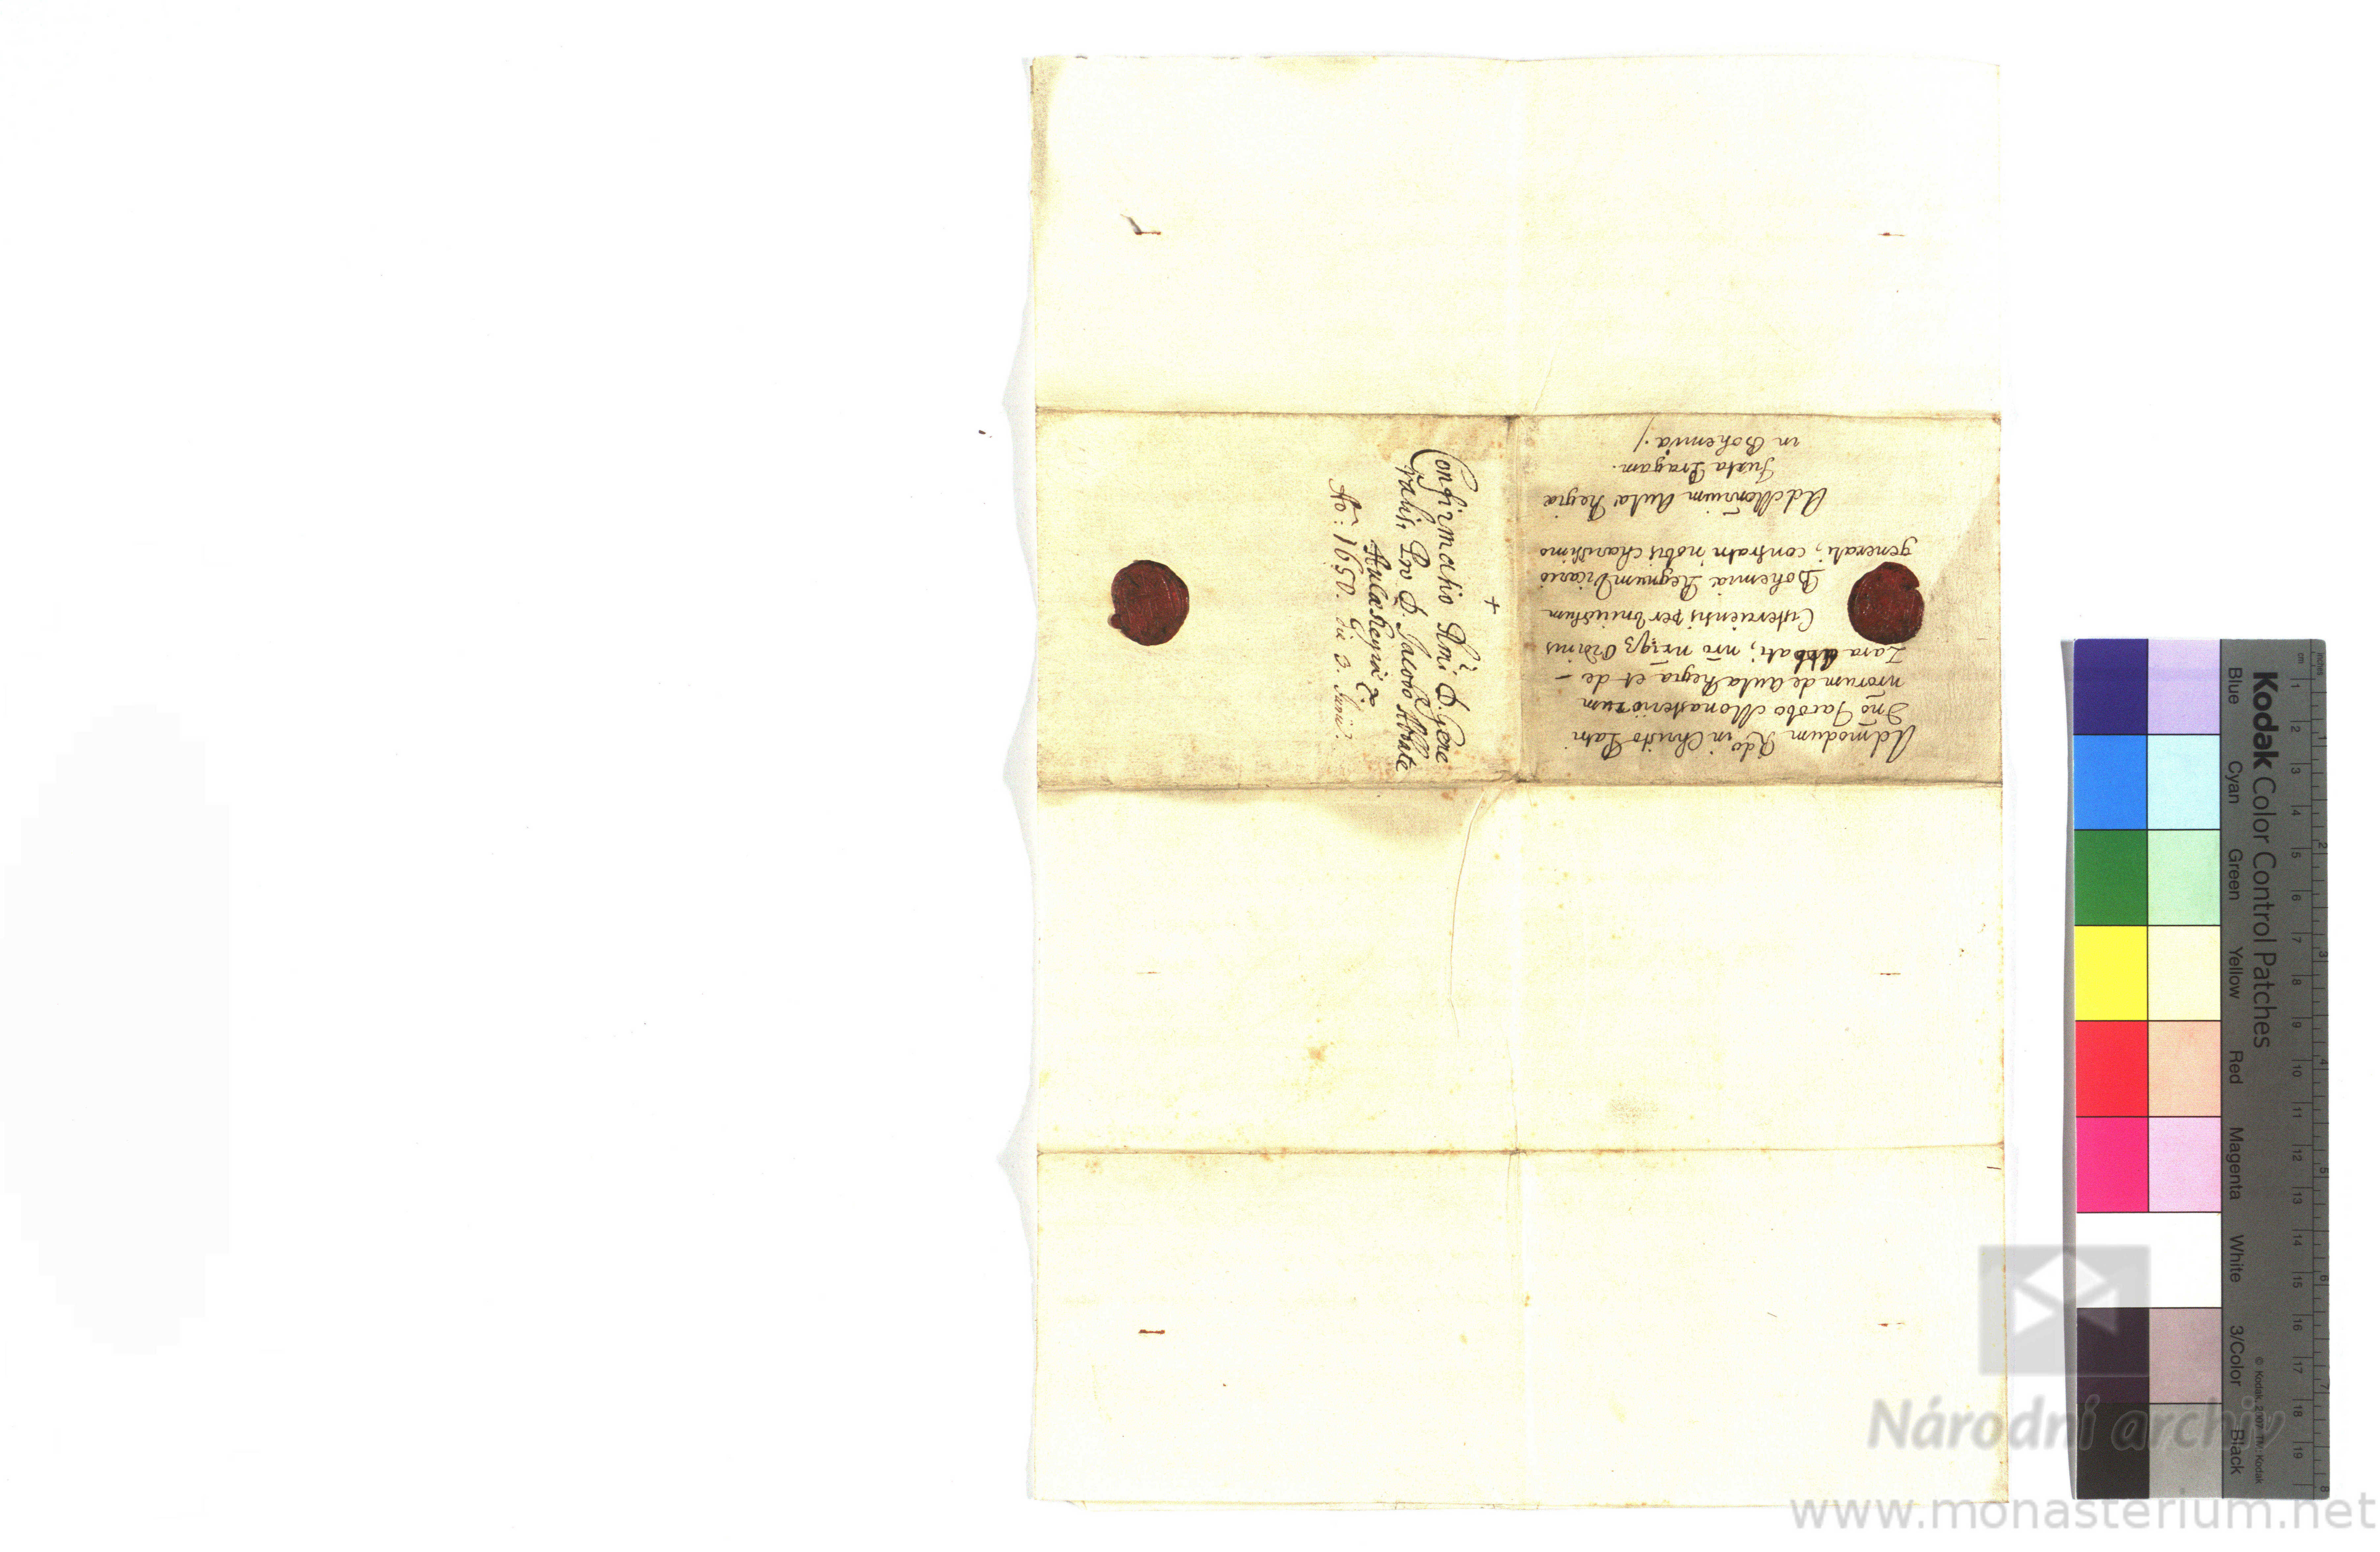 Admodum Rdo in Christo Patri
Dno Jacobo Monasteriorum
nrorum de Aula Regia et de -
Zara Abbati, nro nriq3 Ordinis
Cisterciensis per universum
Bohemia Regnum Vicario
generali, confratri nobis charissimo
Ad Monrium Aula Regia
Juxta Pragam.
in Bohemia ./
+
Confirmatio Rmi D. Gene
ralis, Pro D. Jacobo Abbate
Aulæ Regiæ &
Ao: 1650. die 3. Junii.
Kodak Color Control Patches
Blue Cyan Green Yellow Red Magenta White 3/Color Black
© Kodak, 2007 TM: Kodak
inches 1 2 3 4 5 6 7 8
cm 1 2 3 4 5 6 7 8 9 10 11 12 13 14 15 16 17 18 19
Národní archiv
www.monasterium.net